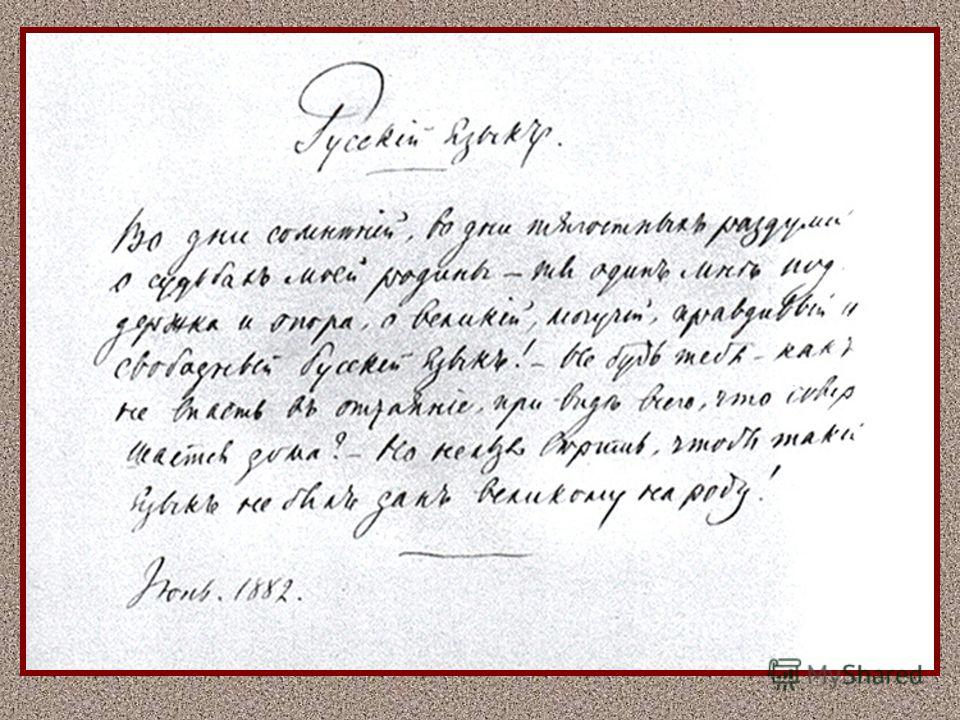 Русскій языкъ.
Во дни сомнѣній, во дни тягостныхъ раздумій
о судьбахъ моей родины – ты одинъ мнѣ под
держка и опора, о великій, могучій, правдивый и
свободный русскій языкъ! – Не будь тебя – какъ
не впасть въ отчаяніе, при видѣ всего, что совер
шается дома? – Но нельзя вѣрить, чтобы такой
языкъ не былъ данъ великому народу!
Іюнь. 1882.
MyShared